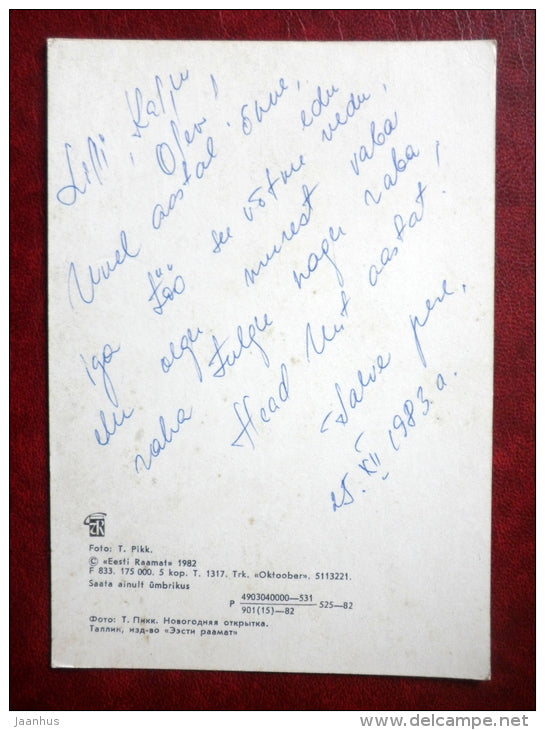 Lilli, Kalju
Olev,
Uuel aastal õnne, edu
iga töö ee võtme vedu,
elu olgu murest vaba
raha tulgu nagu raba,
Head Uut aastat.
Salve pere,
25. XII 1983. a.
Foto: T. Pikk.
© «Eesti Raamat» 1982
F 833. 175 000. 5 kop. T. 1317. Trk. «Oktoober». 5113221.
Saata ainult ümbrikus
P 4903040000—531 525—82
901(15)—82
Фото: Т. Пикк. Новогодняя открытка.
Таллин, изд-во «Ээсти раамат»
jaanhus
www.delcampe.net